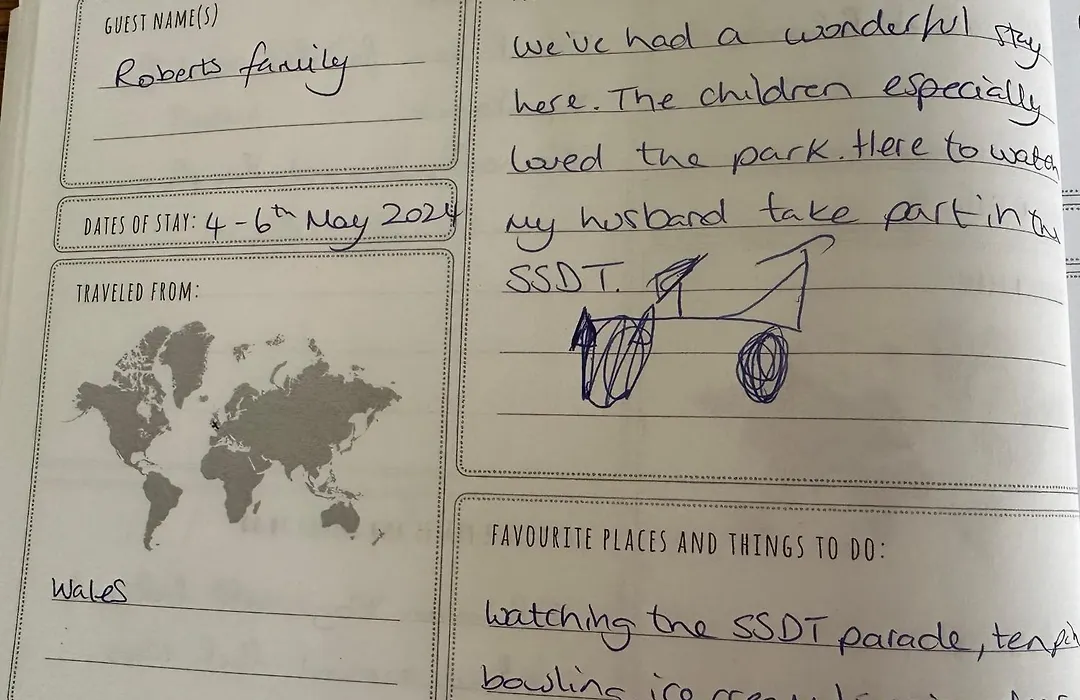 GUEST NAME(S)
Roberts family
DATES OF STAY: 4 - 6th May 2024
TRAVELED FROM:
Wales
We've had a wonderful stay
here. The children especially
loved the park. Here to watch
my husband take part in the
SSDT.
FAVOURITE PLACES AND THINGS TO DO:
watching the SSDT parade, tenpin
bowling ice